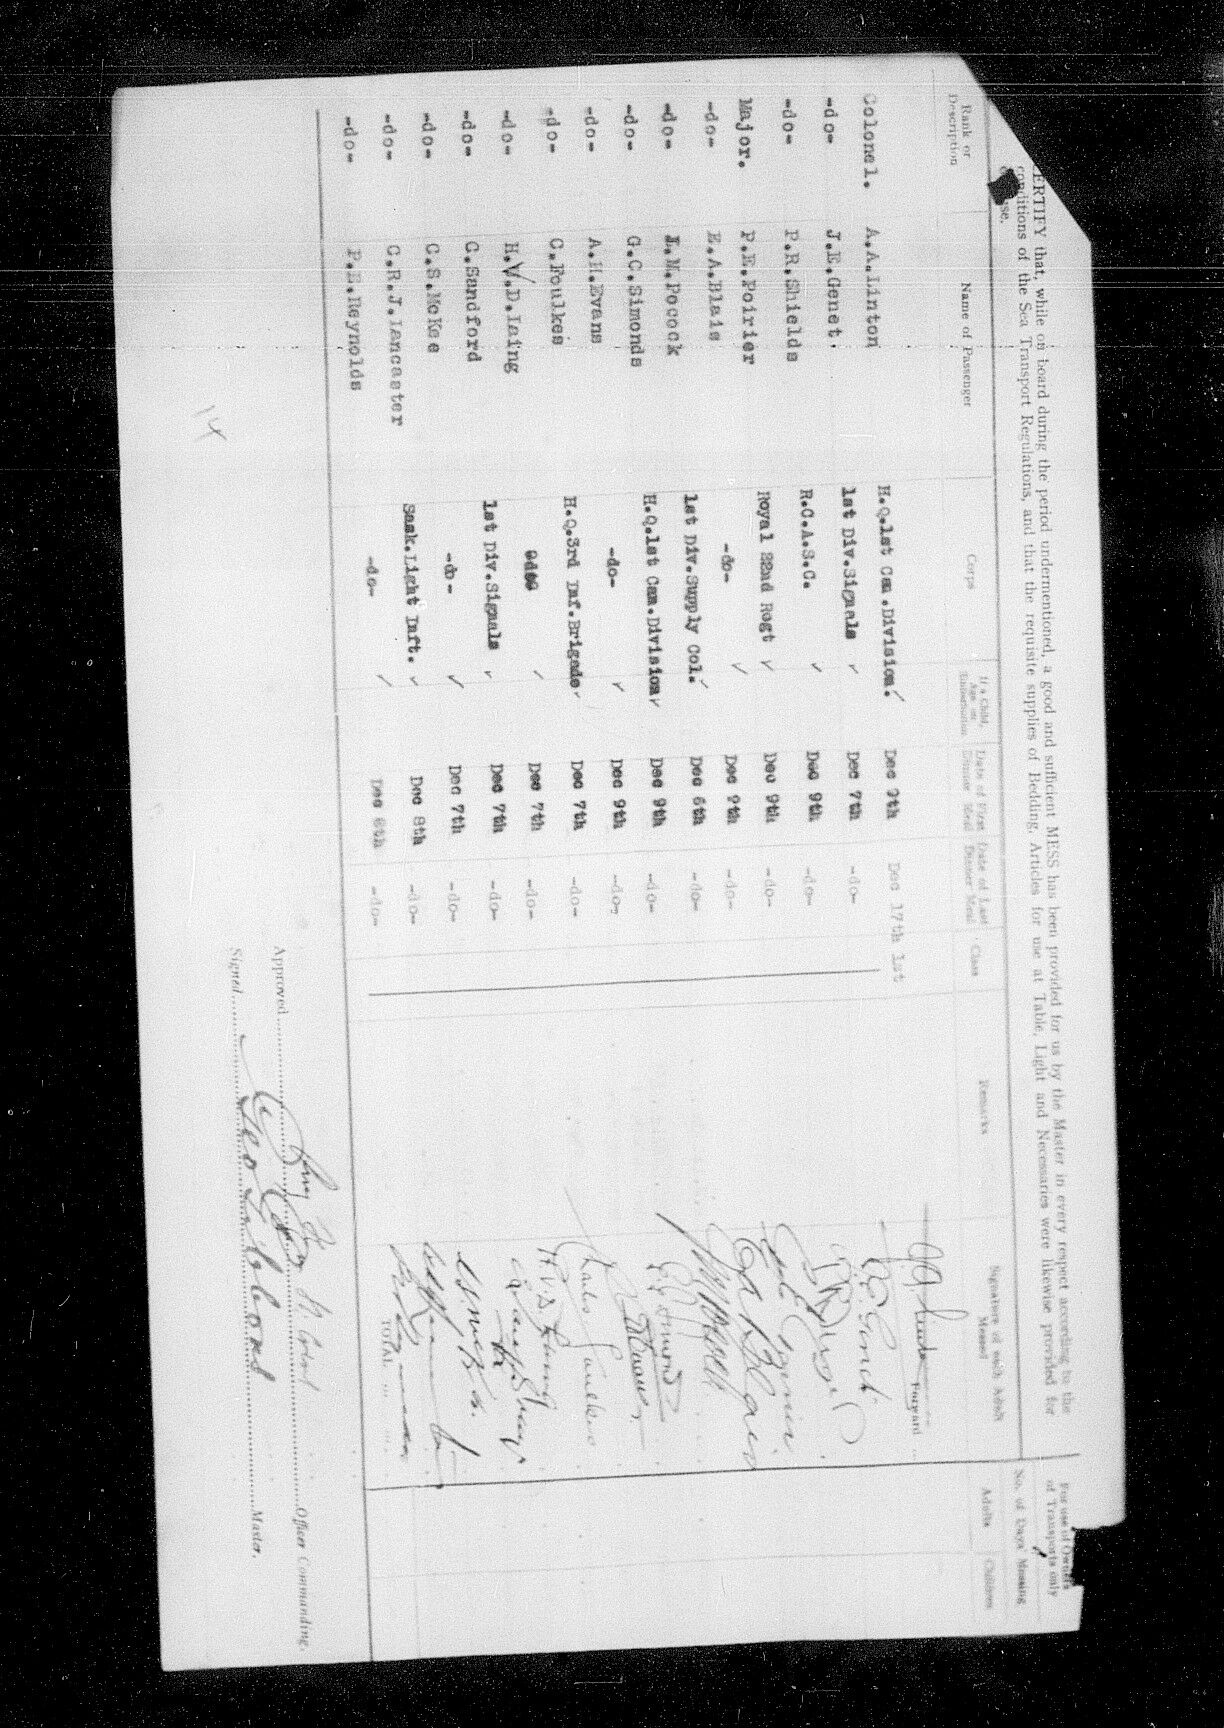 CERTIFY that, while on board during the period undermentioned, a good and sufficient MESS has been provided for us by the Master in every respect according to the
conditions of the Sea Transport Regulations, and that the requisite supplies of Bedding, Articles for use at Table, Light and Necessaries were likewise provided for
use.
For use of Owners of Transports only
No. of Days Messing
Rank or Description Name of Passenger Corps If a Child, Age on Embarkation Date of First Dinner Meal Date of Last Dinner Meal Class Remarks Signature of each Adult Messed Adults Children
Forward
Colonel. A.A.Linton H.Q.1st Can.Division. ✓ Dec 9th Dec 17th 1st
-do- J.E.Genet. 1st Div.Signals ✓ Dec 7th -do-
-do- P.R.Shields R.C.A.S.C. ✓ Dec 9th -do-
Major. P.E.Poirier Royal 22nd Regt ✓ Dec 9th -do-
-do- E.A.Blais -do- ✓ Dec 9th -do-
-do- L.M.Pocock 1st Div.Supply Col. ✓ Dec 6th -do-
-do- G.C.Simonds H.Q.1st Can.Division ✓ Dec 9th -do-
-do- A.H.Evans -do- ✓ Dec 9th -do-
-do- C.Foulkes H.Q.3rd Inf.Brigade ✓ Dec 7th -do-
-do- H.V.D.Laing ✓ Dec 7th -do-
-do- C.Sandford 1st Div.Signals ✓ Dec 7th -do-
-do- C.S.McKee -do- ✓ Dec 7th -do-
-do- C.R.J.Lancaster Sask.Light Inft. ✓ Dec 8th -do-
-do- P.E.Reynolds -do- ✓ Dec 6th -do-
TOTAL
Approved Officer Commanding.
Signed Geo Gibbons Master.
14